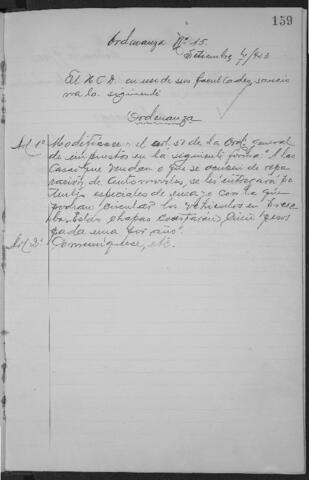 159
Ordenanza Nº 15.
Setiembre 4/913
El H C D. en uso de sus facultades, sancio
na la siguiente
Ordenanza
Art 1º Modifícase el art. 57 de la Ord. general
de impuestos en la siguiente forma: A las
Casas que vendan o que se ocupen de repa
ración de automoviles, se les entregará pa
tentes especiales de ensayo con la que
podran circular los vehículos en prue
ba. Estas chapas costarán, cien pesos
cada una por año".
Art 2º Comuníquese, etc.